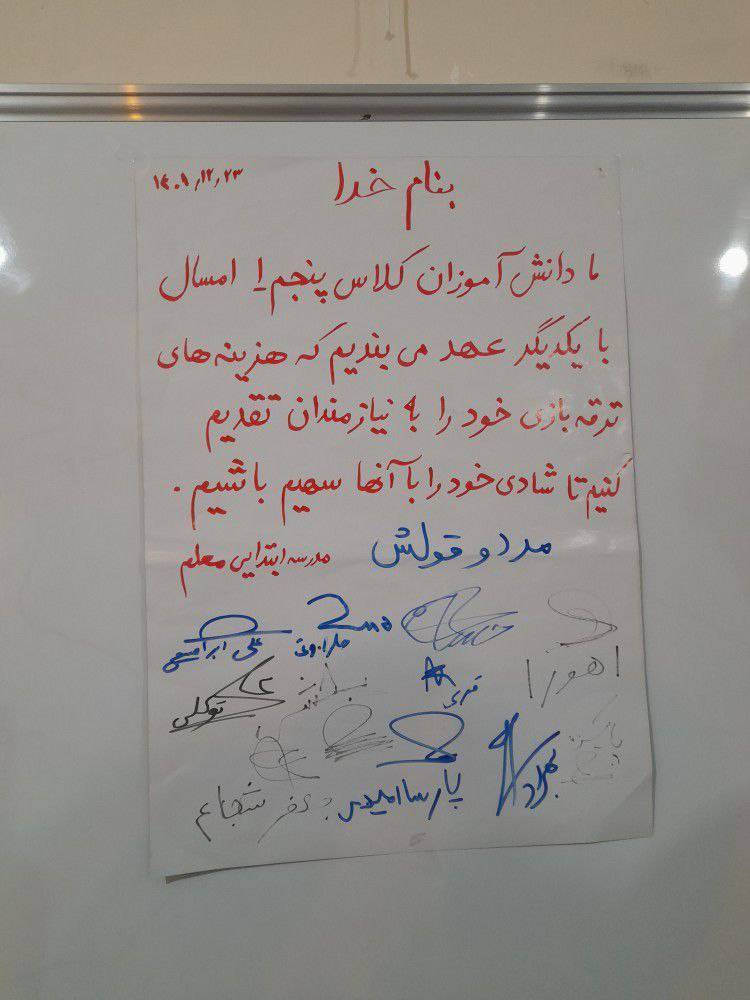 بنام خدا
۱۴۰۱/۱۲/۲۳
ما دانش آموزان کلاس پنجم ۱ امسال
با یکدیگر عهد می بندیم که هزینه های
ترقه بازی خود را به نیازمندان تقدیم
کنیم تا شادی خود را با آنها سهیم باشیم.
مرد و قولش
مدرسه ابتدایی معلم
علی ابراهیمی
اهورا
توکلی
بهراد
پارسا امیدی
جعفر شجاع